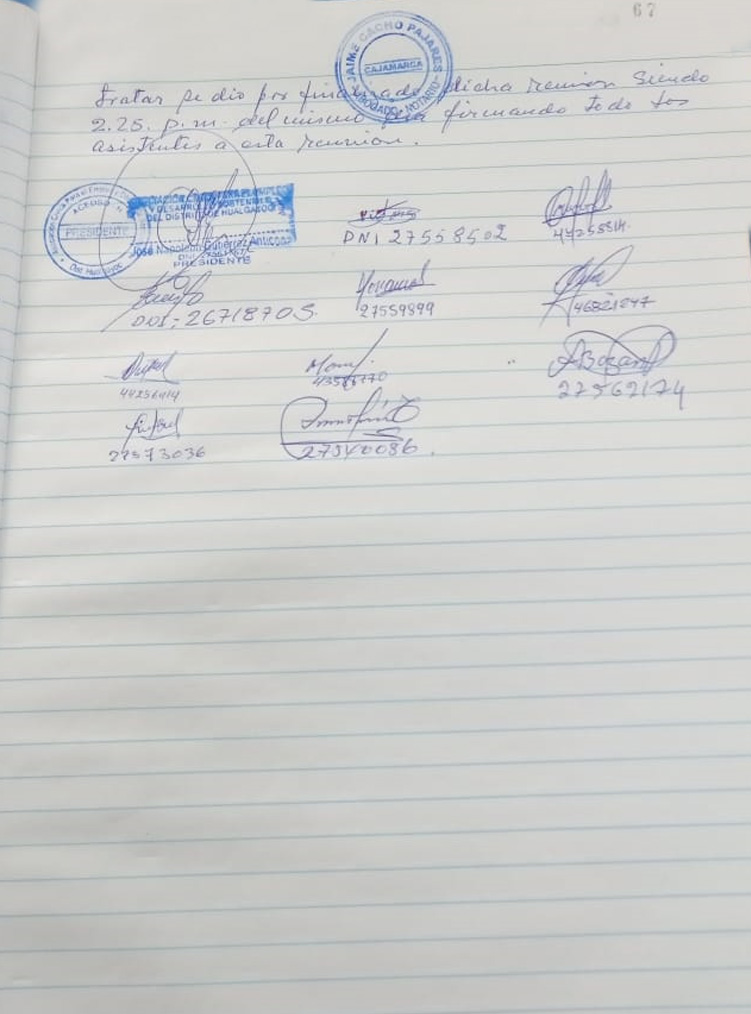 67
JAIME CACHO PAJARES
CAJAMARCA
ABOGADO - NOTARIO
tratar se dio por finalizado dicha reunion siendo
2.25. p.m. del mismo dia firmando todo los
asistentes a esta reunion.
PRESIDENTE
Dist. Hualgayoc
ASOCIACIÓN CIVICA PARA EL EMPLEO
Y DESARROLLO SOSTENIBLE
DEL DISTRITO DE HUALGAYOC
José Napoleón Gutiérrez Anticona
PRESIDENTE
DNI 27558502
44255814.
DOI: 26718705.
27559899
46821247
44256414
27562174
27573036
27540086.